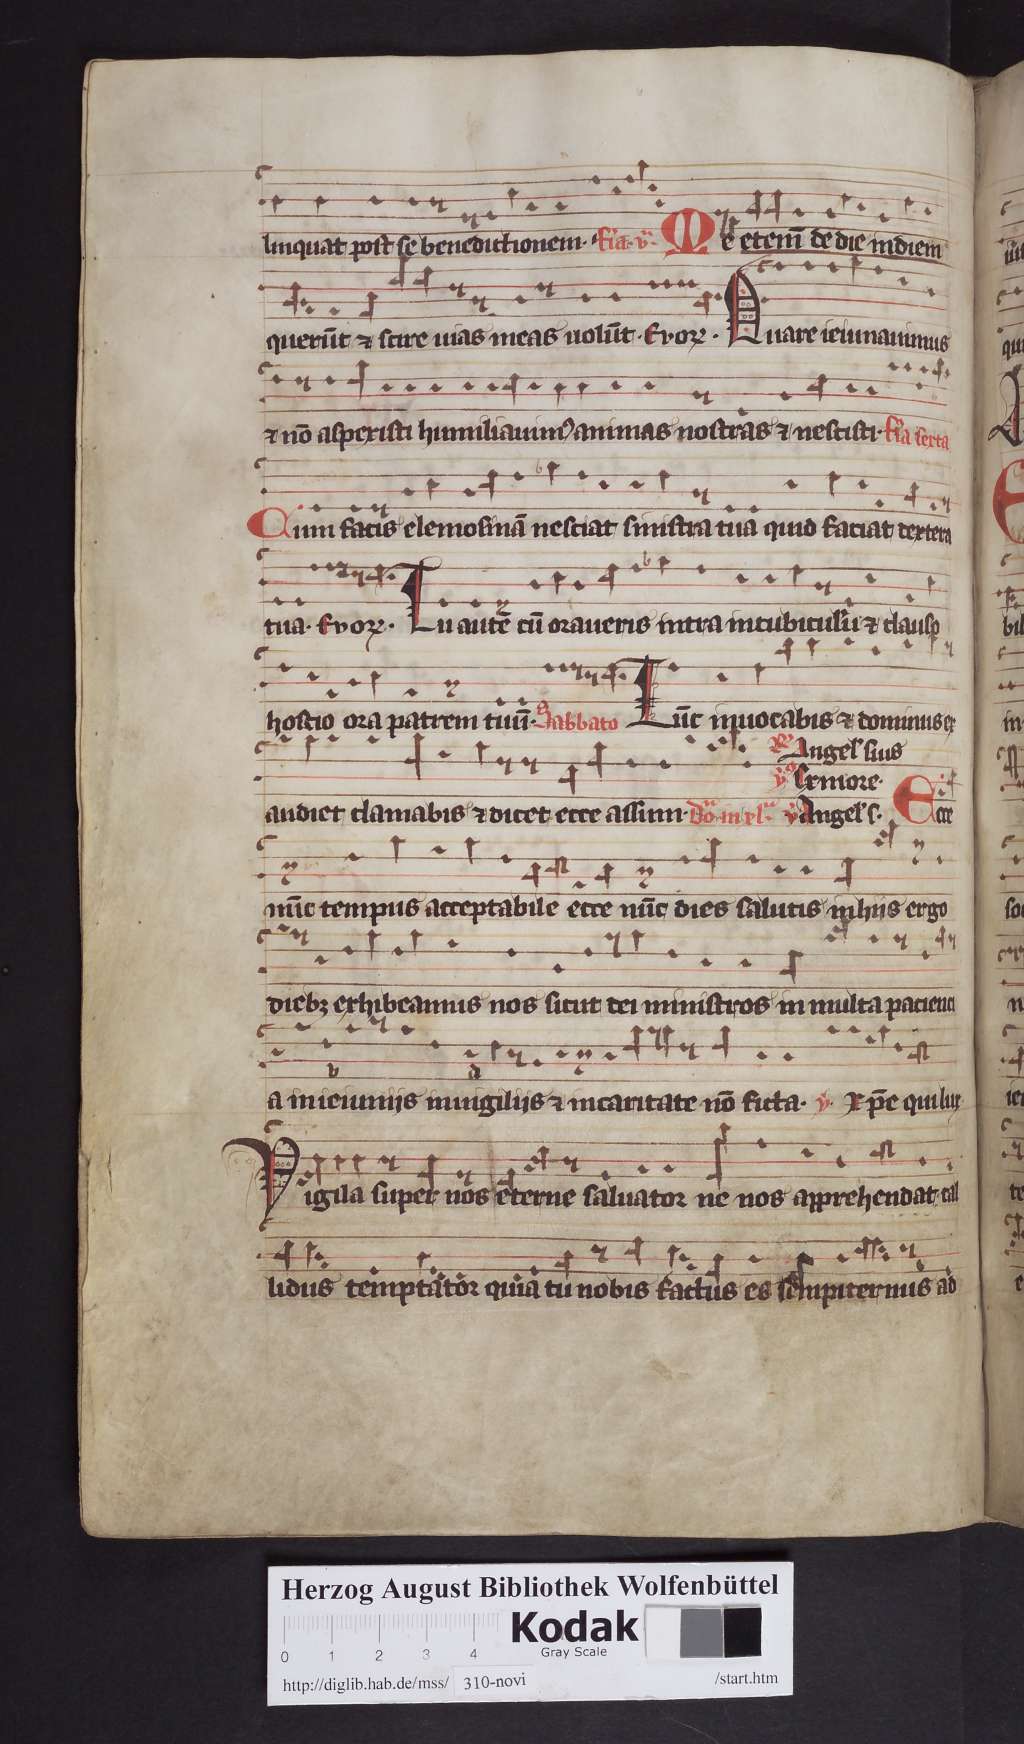 linquat post se benedictionem. fia. v. Me etem̄ de die in diem
querūt ⁊ scire uias meas uolūt. Evoꝝ. Quare ieiunauimus
⁊ nō aspexisti humiliauim⁹ animas nostras ⁊ nescisti. fia sexta
Cum facis elemosinā nesciat sinistra tua quid faciat dextera
tua. Evoꝝ. Tu autē cū oraueris intra in cubiculū ⁊ clauso
hostio ora patrem tuū. Sabbato Tūc inuocabis ⁊ dominus ex
Angel' suis
sermore.
audiet clamabis ⁊ dicet ecce assum. v̄ Angel' s. Ecce
nūc tempus acceptabile ecce nūc dies salutis in hiis ergo
diebꝫ exhibeamus nos sicut dei ministros in multa pacienci
a in ieiuniis in uigiliis ⁊ in caritate nō ficta. v̄. Xp̄e qui lux
Vigila super nos eterne saluator ne nos apprehendat cal
lidus temptator quia tu nobis factus es sempiternus ad
Herzog August Bibliothek Wolfenbüttel
0 1 2 3 4
Kodak
Gray Scale
http://diglib.hab.de/mss/ 310-novi /start.htm